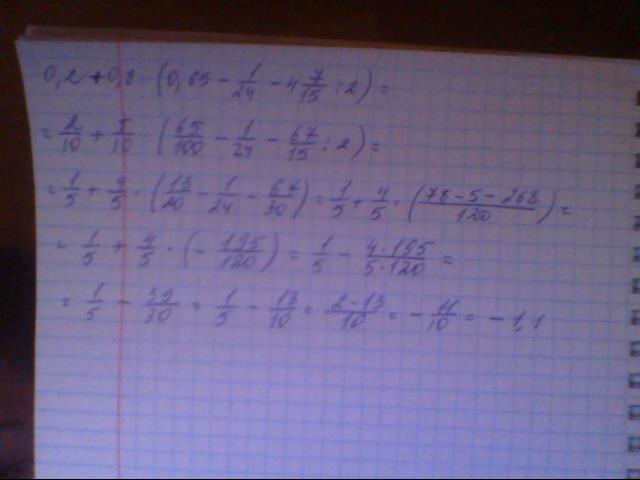 0,2 + 0,8 · (0,65 - 1/24 - 4 7/15 : 2) =
= 2/10 + 8/10 · (65/100 - 1/24 - 67/15 : 2) =
= 1/5 + 4/5 · (13/20 - 1/24 - 67/30) = 1/5 + 4/5 · (78 - 5 - 268/120) =
= 1/5 + 4/5 · (- 195/120) = 1/5 - 4·195/5·120 =
= 1/5 - 39/30 = 1/5 - 13/10 = 2-13/10 = - 11/10 = - 1,1